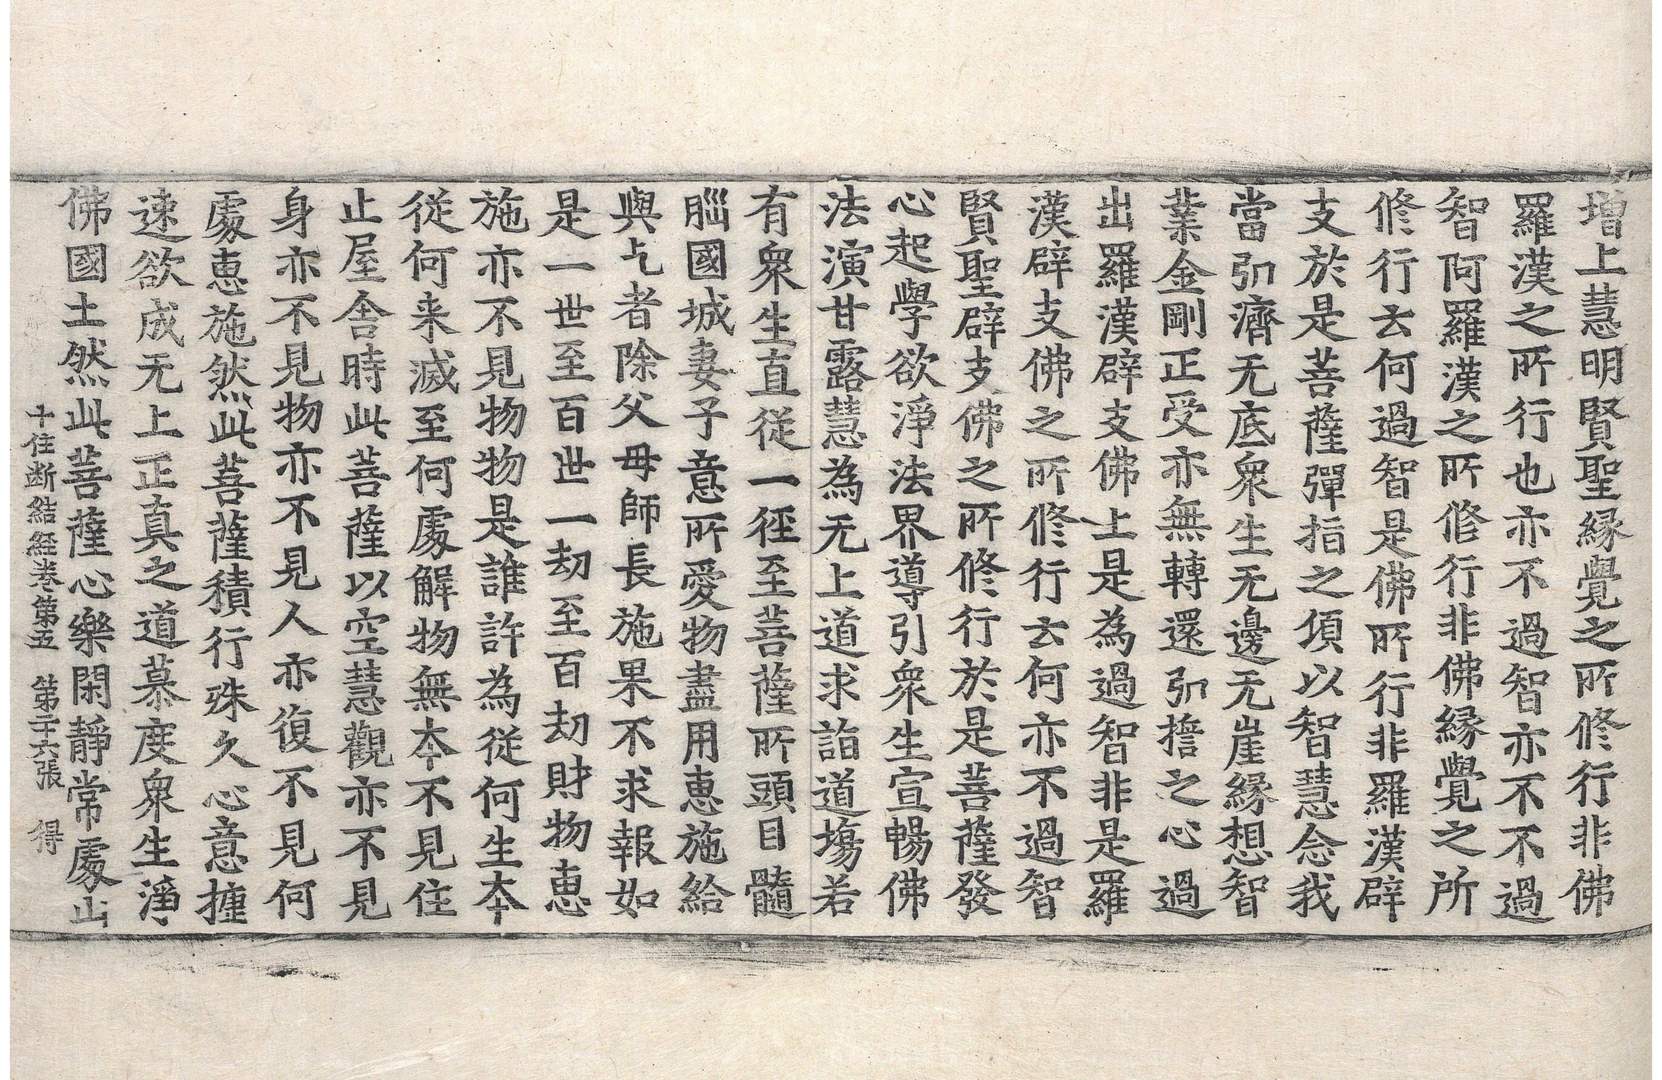 增上慧明賢聖縁覺之所修行非佛
羅漢之所行也亦不過智亦不不過
智阿羅漢之所修行非佛縁覺之所
修行云何過智是佛所行非羅漢辟
支於是菩薩彈指之頃以智慧念我
當弘濟无底衆生无邊无崖縁想智
業金剛正受亦無轉還弘誓之心過
出羅漢辟支佛上是為過智非是羅
漢辟支佛之所修行云何亦不過智
賢聖辟支佛之所修行於是菩薩發
心起學欲淨法界導引衆生宣暢佛
法演甘露慧為无上道求詣道塲若
有衆生直從一徑至菩薩所頭目髓
腦國城妻子意所愛物盡用惠施給
與乞者除父母師長施果不求報如
是一世至百世一劫至百劫財物惠
施亦不見物物是誰許為從何生本
從何来滅至何處解物無本不見住
止屋舎時此菩薩以空慧觀亦不見
身亦不見物亦不見人亦復不見何
處惠施然此菩薩積行殊久心意揰
速欲成无上正真之道慕度衆生淨
佛國土然此菩薩心樂閑靜常處山
十住斷結經卷第五　第二十六張　得